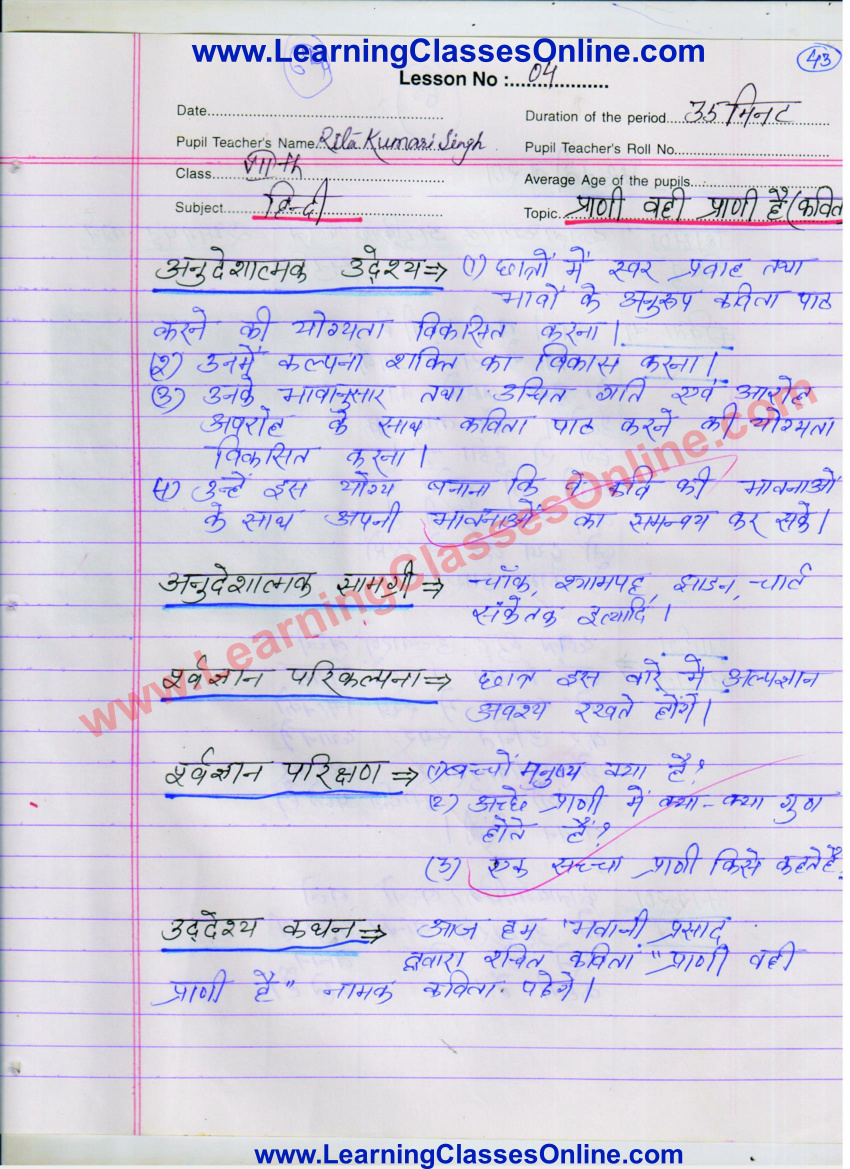 www.LearningClassesOnline.com
43
Lesson No :....04....
Date....
Duration of the period....35 मिनट
Pupil Teacher's Name. Rita Kumari Singh
Pupil Teacher's Roll No....
Class....
Average Age of the pupils....
Subject.... हिन्दी
Topic. प्राणी वही प्राणी है (कवित
अनुदेशात्मक उद्देश्य ⇒ (1) छात्रों में स्वर प्रवाह तथा
भावों के अनुरूप कविता पाठ
करने की योग्यता विकसित करना।
(२) उनमें कल्पना शक्ति का विकास करना।
(३) उनके भावानुसार तथा उचित गति एवं आरोह
अवरोह के साथ कविता पाठ करने की योग्यता
विकसित करना।
(4) उन्हें इस योग्य बनाना कि वे कवि की भावनाओं
के साथ अपनी भावनाओं का समन्वय कर सकें।
अनुदेशात्मक सामग्री ⇒ चॉक, श्यामपट्ट, झाडन, चार्ट
संकेतक इत्यादि।
पूर्वज्ञान परिकल्पना ⇒ छात्र इस बारे में अल्पज्ञान
अवश्य रखते होंगें।
पूर्वज्ञान परिक्षण ⇒ (1) बच्चों मनुष्य क्या है?
(2) अच्छे प्राणी में क्या-क्या गुण
होते हैं?
(3) एक सच्चा प्राणी किसे कहते है
उद्देश्य कथन ⇒ आज हम "भवानी प्रसाद
द्वारा रचित कविता "प्राणी वही
प्राणी है" नामक कविता पढेगे।
www.LearningClassesOnline.com
www.LearningClassesOnline.com